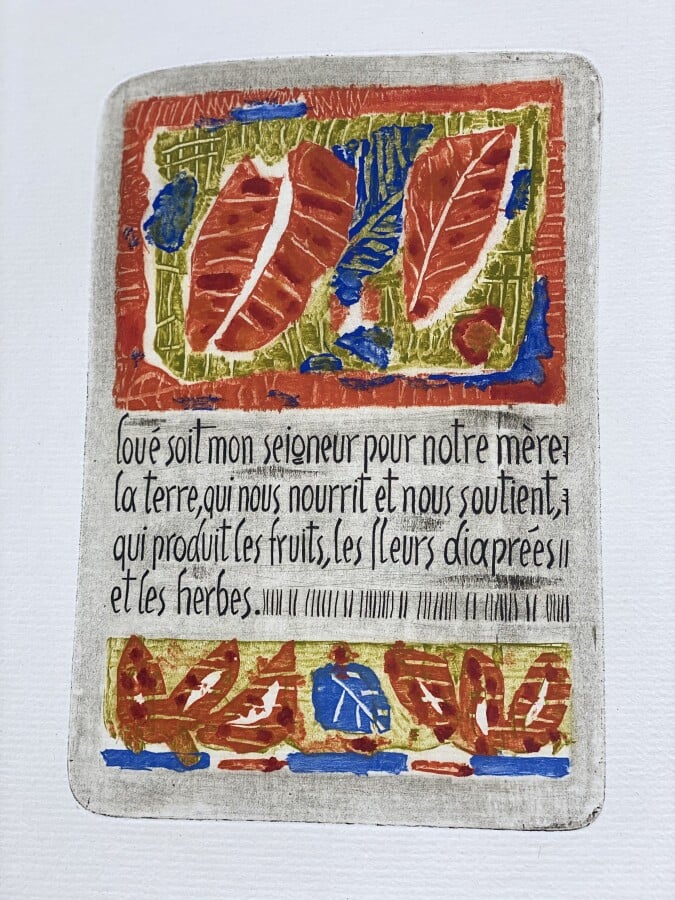 loué soit mon seigneur pour notre mère
la terre, qui nous nourrit et nous soutient,
qui produit les fruits, les fleurs diaprées
et les herbes.